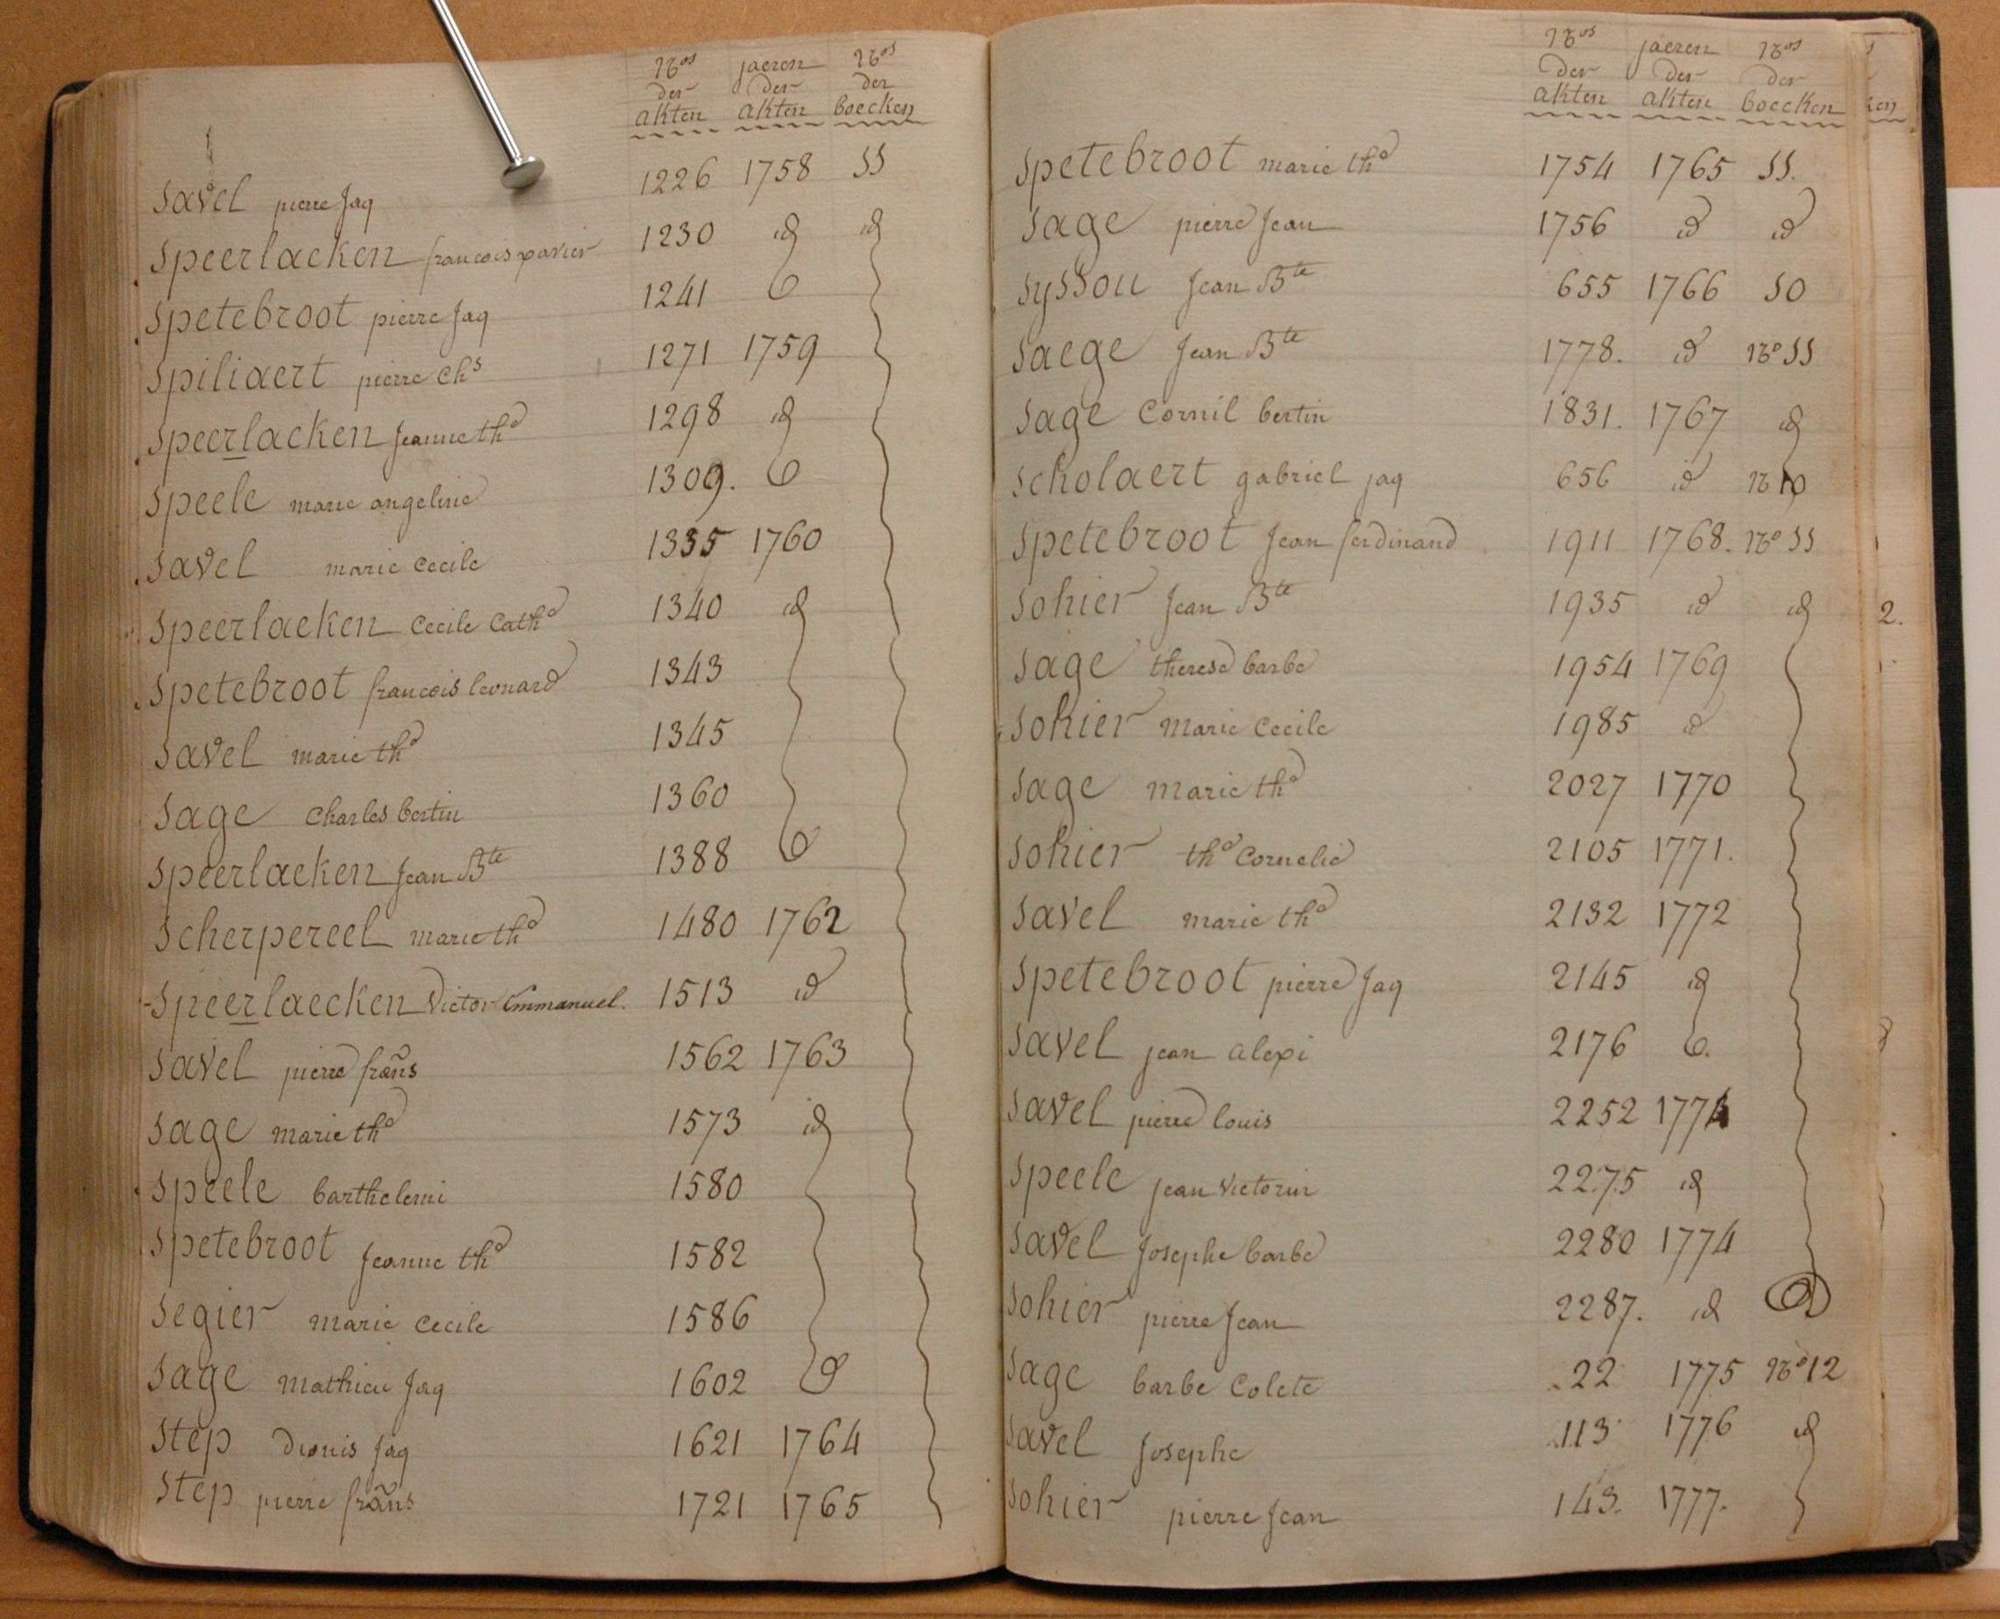 Nos der akten jaeren der akten Nos der boecken
savel pierre Jaq 1226 1758 SS
speerlacken francois xavier 1230 id id
spetebroot pierre Jaq 1241
spiliaert pierre Chs 1271 1759
speerlacken Jeanne the 1298 id
speele marie angeline 1309.
savel marie Cecile 1335 1760
speerlaeken Cecile Cathe 1340 id
spetebroot francois leonard 1343
savel marie the 1345
sage Charles bertin 1360
speerlaeken Jean Bte 1388
scherpereel marie the 1480 1762
speerlaecken Victor Emmanuel. 1513 id
savel pierre frans 1562 1763
sage marie the 1573 id
speele barthelemi 1580
spetebroot Jeanne the 1582
segier marie Cecile 1586
sage mathieu Jaq 1602
step Dionis Jaq 1621 1764
step pierre frans 1721 1765
Nos der akten jaeren der akten Nos der boecken
spetebroot marie the 1754 1765 SS.
sage pierre Jean 1756 id id
syssou Jean Bte 655 1766 SO
saege Jean Bte 1778. id No SS
sage Cornil bertin 1831. 1767 id
scholaert gabriel jaq 656 id No
spetebroot Jean ferdinand 1911 1768. No SS
sohier Jean Bte 1935 id id
sage therese barbe 1954 1769
sohier marie Cecile 1985 id
sage marie the 2027 1770
sohier the Cornelie 2105 1771.
savel marie the 2132 1772
spetebroot pierre Jaq 2145 id
savel jean alexi 2176
savel pierre louis 2252
speele jean victorin 2275 id
savel Josephe barbe 2280 1774
sohier pierre Jean 2287. id
sage barbe Colete 22 1775 No 12
savel Josephe 113 1776 id
sohier pierre Jean 143. 1777.
ken
2.